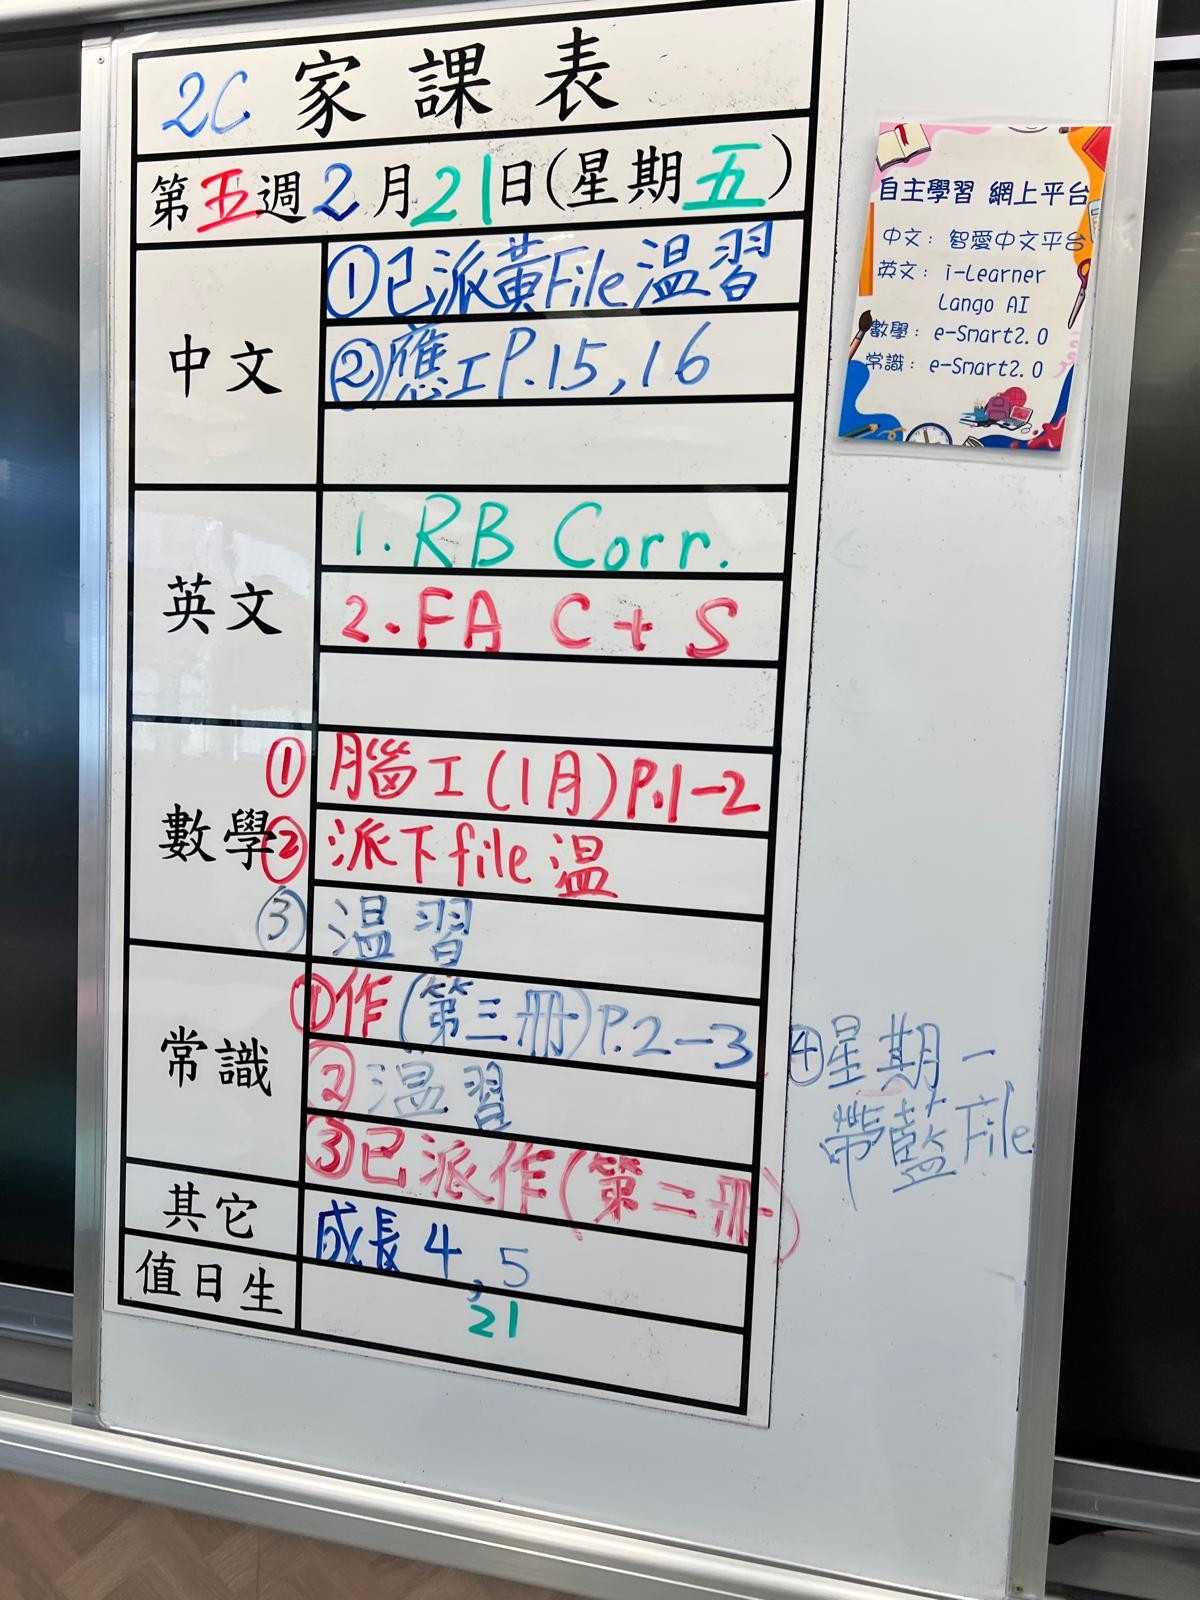 2C 家課表
第五週2月21日(星期五)
中文
①已派黃File温習
②應工P.15,16
英文
1. RB Corr.
2. FA C + S
數學
①腦工(1月)P.1-2
②派下file温
③温習
常識
①作(第三冊)P.2-3
②温習
③已派作(第二冊)
④星期一
帶藍File
其它
成長4,5
值日生
21
自主學習 網上平台
中文：智愛中文平台
英文：i-Learner
Lango AI
數學：e-Smart2.0
常識：e-Smart2.0